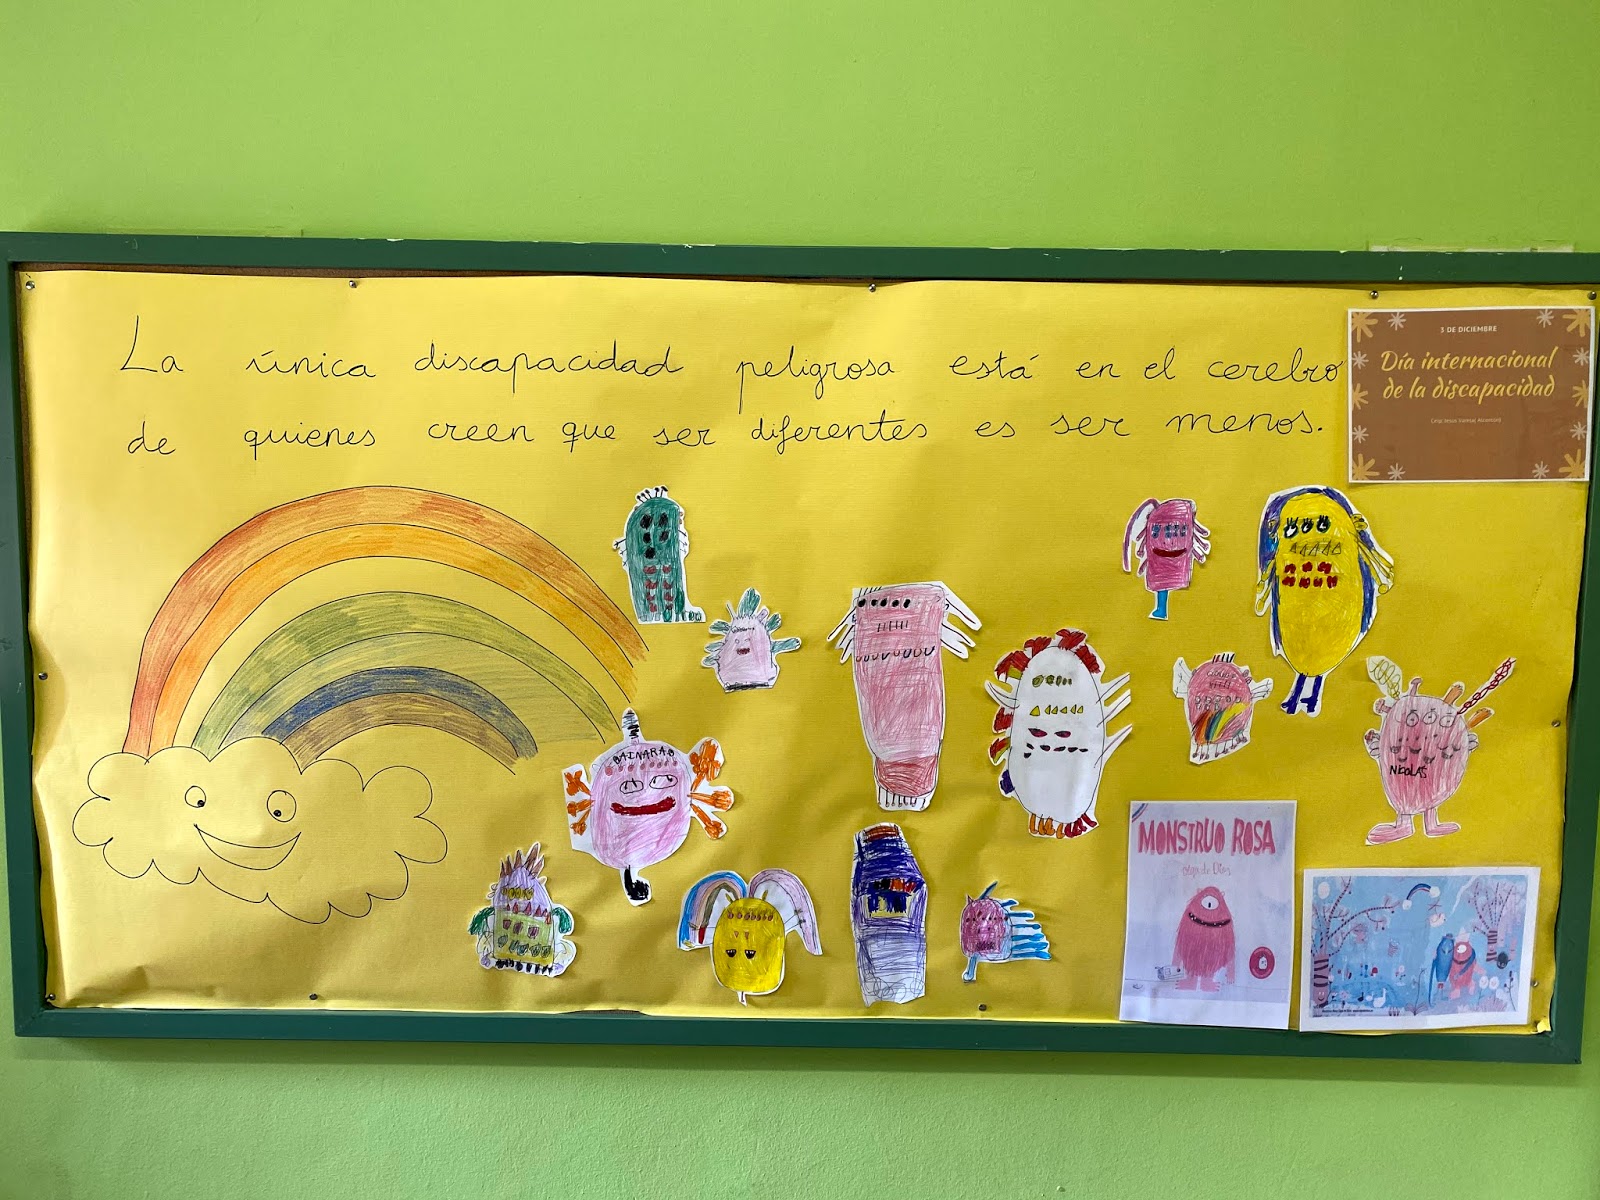 La única discapacidad peligrosa está en el cerebro
de quienes creen que ser diferentes es ser menos.
3 DE DICIEMBRE
Día internacional
de la discapacidad
MONSTRUO ROSA
olga de Dios
NICOLAS